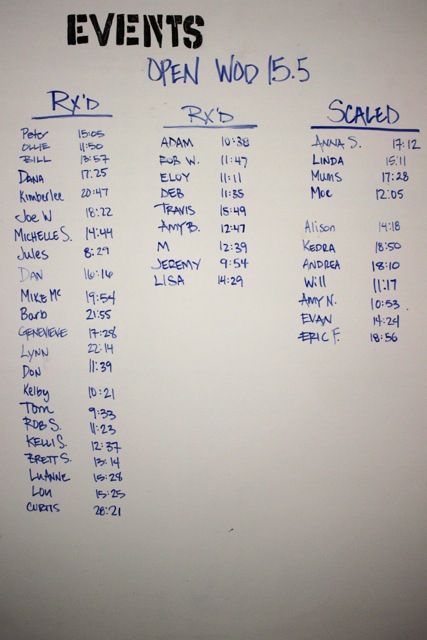 EVENTS
OPEN WOD 15.5
RX'D
Peter 15:05
OLLIE 11:50
BILL 13:57
DANA 17:25
Kimberlee 20:47
Joe W 18:22
MICHELLE S. 14:44
Jules 8:29
DAN 16:16
MIKE Mc 19:54
Barb 21:55
GENEVIEVE 17:28
LYNN 22:14
DON 11:39
Kelby 10:21
Tom 9:33
ROB S. 11:23
KELLI S. 12:37
BRETT S. 13:14
LUANNE 15:28
LOU 15:25
CURTIS 28:21
RX'D
ADAM 10:38
ROB W. 11:47
ELOY 11:11
DEB 11:35
TRAVIS 15:49
AMY B. 12:47
M 12:39
JEREMY 9:54
LISA 14:29
SCALED
ANNA S. 17:12
LINDA 15:11
MUMS 17:28
Moe 12:05
Alison 14:18
KEDRA 18:50
ANDREA 18:10
Will 11:17
AMY N. 10:53
EVAN 14:24
ERIC F. 18:56